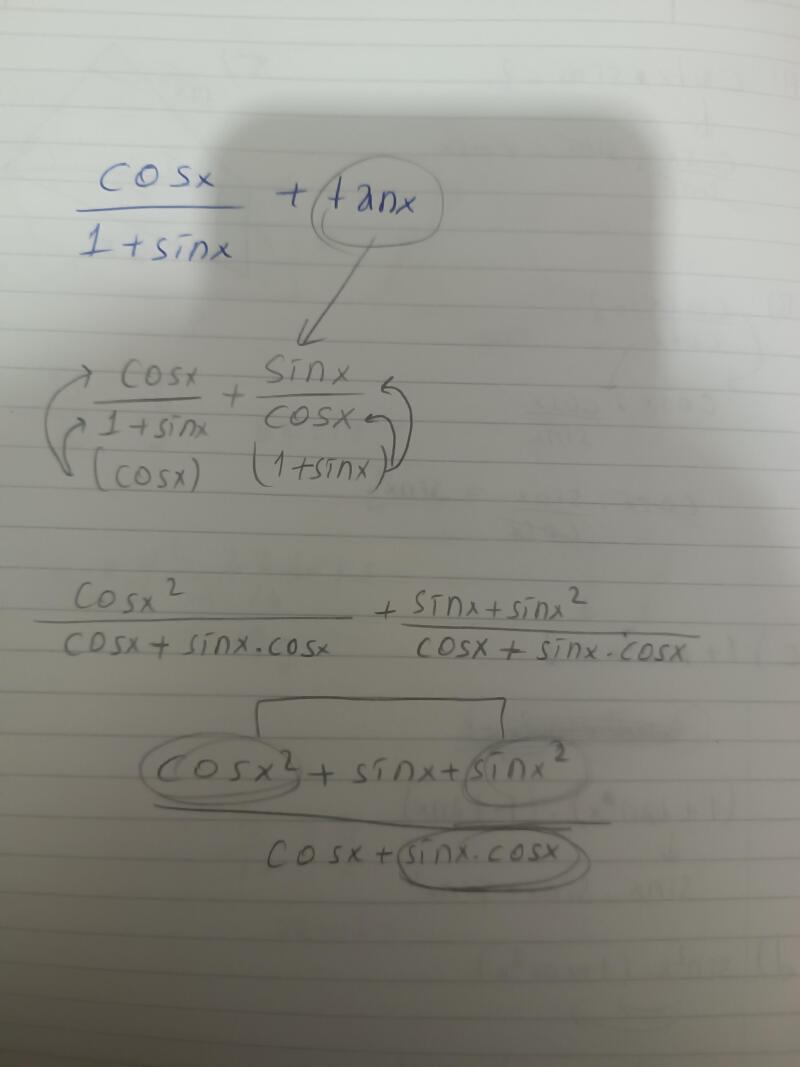 cosx / 1+sinx + tanx
cosx / 1+sinx + sinx / cosx
(cosx) (1+sinx)
cosx² / cosx + sinx.cosx + sinx+sinx² / cosx + sinx.cosx
cosx² + sinx + sinx² / cosx + sinx.cosx